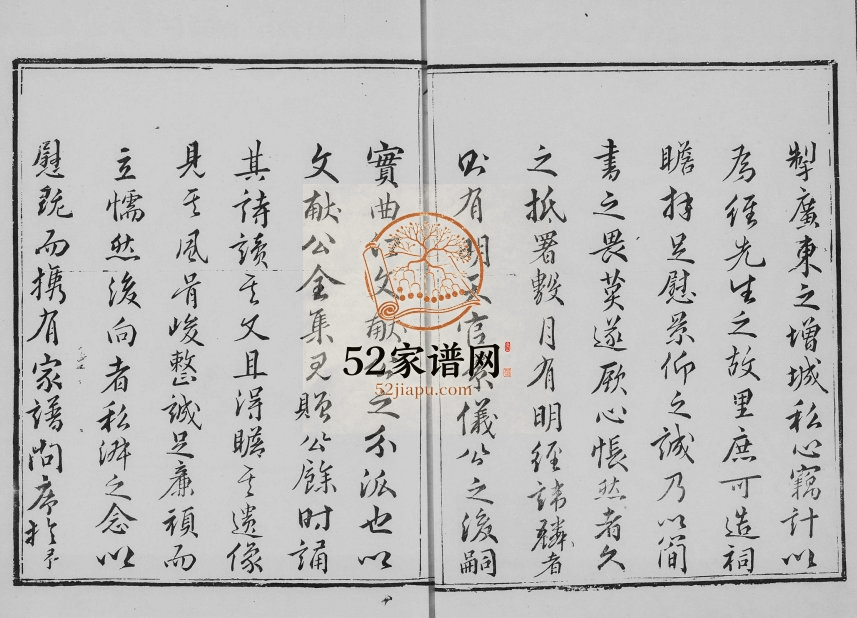 掣廣東之增城私心竊計以
為經先生之故里庶可造祠
瞻拜足慰景仰之誠乃以簡
書之畏莫遂厥心悵然者久
之抵署數月有明經諱麟者
有明天官 儀公之後嗣
實曲江文獻 之分派也以
文獻公全集見贈公餘時誦
其詩讀其文且得瞻其遺像
見其風骨峻整誠足廉頑而
立懦然後向者私淑之念以
慰既而携有家譜問序於予
52家谱网
52jiapu.com